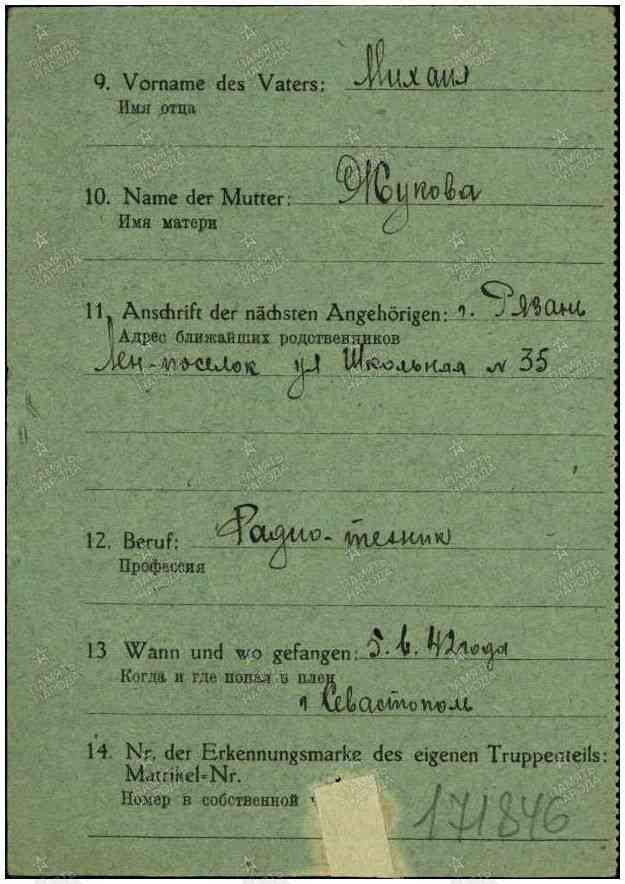 9. Vorname des Vaters: Михаил
Имя отца
10. Name der Mutter: Жукова
Имя матери
11. Anschrift der nächsten Angehörigen: г. Рязань
Адрес ближайших родственников
Лен-поселок ул Школьная N 35
12. Beruf: Радио-техник
Профессия
13 Wann und wo gefangen: 5.6.42 года
Когда и где попал в плен
г Севастополь
14. Nr. der Erkennungsmarke des eigenen Truppenteils:
Matrikel=Nr.
Номер в собственной
171846
ПАМЯТЬ НАРОДА